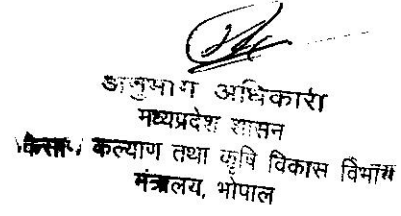 अनुभाग अधिकारी
मध्यप्रदेश शासन
किसान कल्याण तथा कृषि विकास विभाग
मंत्रालय, भोपाल